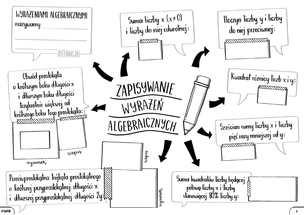 WYRAŻENIAMI ALGEBRAICZNYMI
nazywamy
Suma liczby x (x≠0)
i liczby do niej odwrotnej:
Iloczyn liczby y i liczby
do niej przeciwnej:
Obwód prostokąta
o krótszym boku długości x
i dłuższym boku długości
trzykrotnie większej od
krótszego boku tego prostokąta:
ZAPISYWANIE
WYRAŻEŃ
ALGEBRAICZNYCH
Kwadrat różnicy liczb x i y:
Sześcian sumy liczby x i liczby
pięć razy mniejszej od y:
Przeciwprostokątna trójkąta prostokątnego
o krótszej przyprostokątnej długości x
i dłuższej przyprostokątnej długości 2y:
Suma kwadratów liczby będącej
połową liczby x i liczby
stanowiącej 10% liczby y: